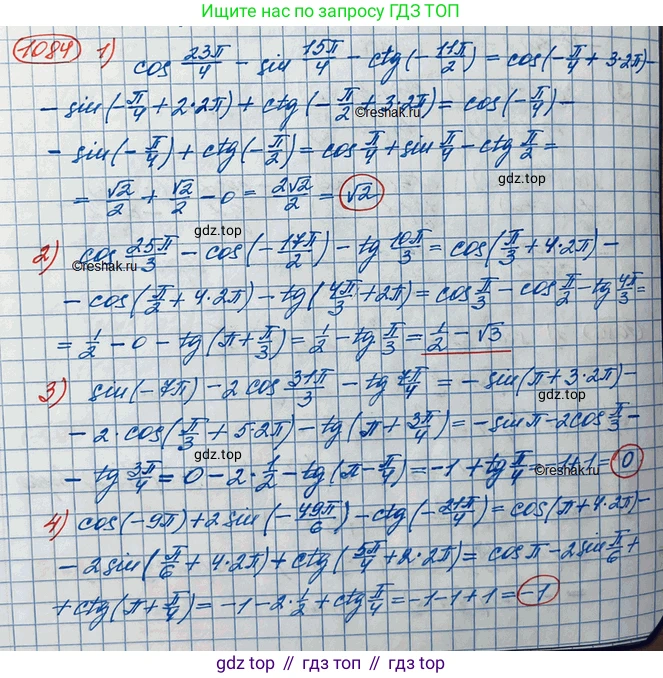 Ищите нас по запросу ГДЗ ТОП
1084 1) cos 23π/4 - sin 15π/4 - ctg(-11π/2) = cos(-π/4 + 3·2π)-
- sin(-π/4 + 2·2π) + ctg(-π/2 + 3·2π) = cos(-π/4) -
©reshak.ru
- sin(-π/4) + ctg(-π/2) = cos π/4 + sin π/4 - ctg π/2 =
= √2/2 + √2/2 - 0 = 2√2/2 = √2
gdz.top
gdz.top
2) cos 25π/3 - cos(-17π/2) - tg 10π/3 = cos(π/3 + 4·2π) -
©reshak.ru
- cos(π/2 + 4·2π) - tg(4π/3 + 2π) = cos π/3 - cos π/2 - tg 4π/3 =
= 1/2 - 0 - tg(π + π/3) = 1/2 - tg π/3 = 1/2 - √3
gdz.top
3) sin(-7π) - 2 cos 31π/3 - tg 7π/4 = - sin(π + 3·2π) -
- 2·cos(π/3 + 5·2π) - tg(π + 3π/4) = - sin π - 2cos π/3 -
- tg 3π/4 = 0 - 2·1/2 - tg(π - π/4) = -1 + tg π/4 = -1+1 = 0
©reshak.ru
gdz.top
4) cos(-9π) + 2 sin(-49π/6) - ctg(-21π/4) = cos(π + 4·2π) -
- 2sin(π/6 + 4·2π) + ctg(5π/4 + 2·2π) = cos π - 2 sin π/6 +
+ ctg(π + π/4) = -1 - 2·1/2 + ctg π/4 = -1 - 1 + 1 = -1
gdz.top
gdz.top // гдз.топ // gdz.top